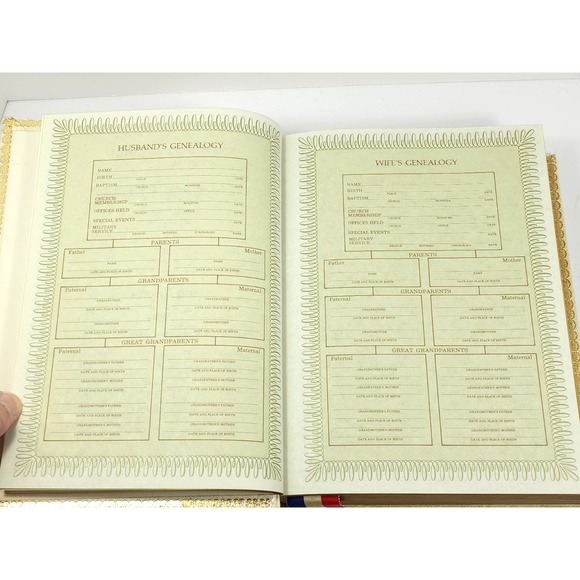 HUSBAND'S GENEALOGY
NAME
BIRTH
PLACE DATE
BAPTISM
CHURCH MINISTER DATE
CHURCH
MEMBERSHIP
CHURCH MINISTER DATE
OFFICES HELD
CHURCH OFFICE DATE
SPECIAL EVENTS
DATE
MILITARY
SERVICE
BRANCH DATE
PARENTS
Father Mother
NAME NAME
DATE AND PLACE OF BIRTH DATE AND PLACE OF BIRTH
GRANDPARENTS
Paternal Maternal
GRANDFATHER GRANDFATHER
DATE AND PLACE OF BIRTH DATE AND PLACE OF BIRTH
GRANDMOTHER GRANDMOTHER
DATE AND PLACE OF BIRTH DATE AND PLACE OF BIRTH
GREAT GRANDPARENTS
Paternal Maternal
GRANDFATHER'S FATHER GRANDFATHER'S FATHER
DATE AND PLACE OF BIRTH DATE AND PLACE OF BIRTH
GRANDFATHER'S MOTHER GRANDFATHER'S MOTHER
DATE AND PLACE OF BIRTH DATE AND PLACE OF BIRTH
GRANDMOTHER'S FATHER GRANDMOTHER'S FATHER
DATE AND PLACE OF BIRTH DATE AND PLACE OF BIRTH
GRANDMOTHER'S MOTHER GRANDMOTHER'S MOTHER
DATE AND PLACE OF BIRTH DATE AND PLACE OF BIRTH
WIFE'S GENEALOGY
NAME
BIRTH
PLACE DATE
BAPTISM
CHURCH MINISTER DATE
CHURCH
MEMBERSHIP
CHURCH MINISTER DATE
OFFICES HELD
CHURCH OFFICE DATE
SPECIAL EVENTS
DATE
MILITARY
SERVICE
BRANCH DATE
PARENTS
Father Mother
NAME NAME
DATE AND PLACE OF BIRTH DATE AND PLACE OF BIRTH
GRANDPARENTS
Paternal Maternal
GRANDFATHER GRANDFATHER
DATE AND PLACE OF BIRTH DATE AND PLACE OF BIRTH
GRANDMOTHER GRANDMOTHER
DATE AND PLACE OF BIRTH DATE AND PLACE OF BIRTH
GREAT GRANDPARENTS
Paternal Maternal
GRANDFATHER'S FATHER GRANDFATHER'S FATHER
DATE AND PLACE OF BIRTH DATE AND PLACE OF BIRTH
GRANDFATHER'S MOTHER GRANDFATHER'S MOTHER
DATE AND PLACE OF BIRTH DATE AND PLACE OF BIRTH
GRANDMOTHER'S FATHER GRANDMOTHER'S FATHER
DATE AND PLACE OF BIRTH DATE AND PLACE OF BIRTH
GRANDMOTHER'S MOTHER GRANDMOTHER'S MOTHER
DATE AND PLACE OF BIRTH DATE AND PLACE OF BIRTH